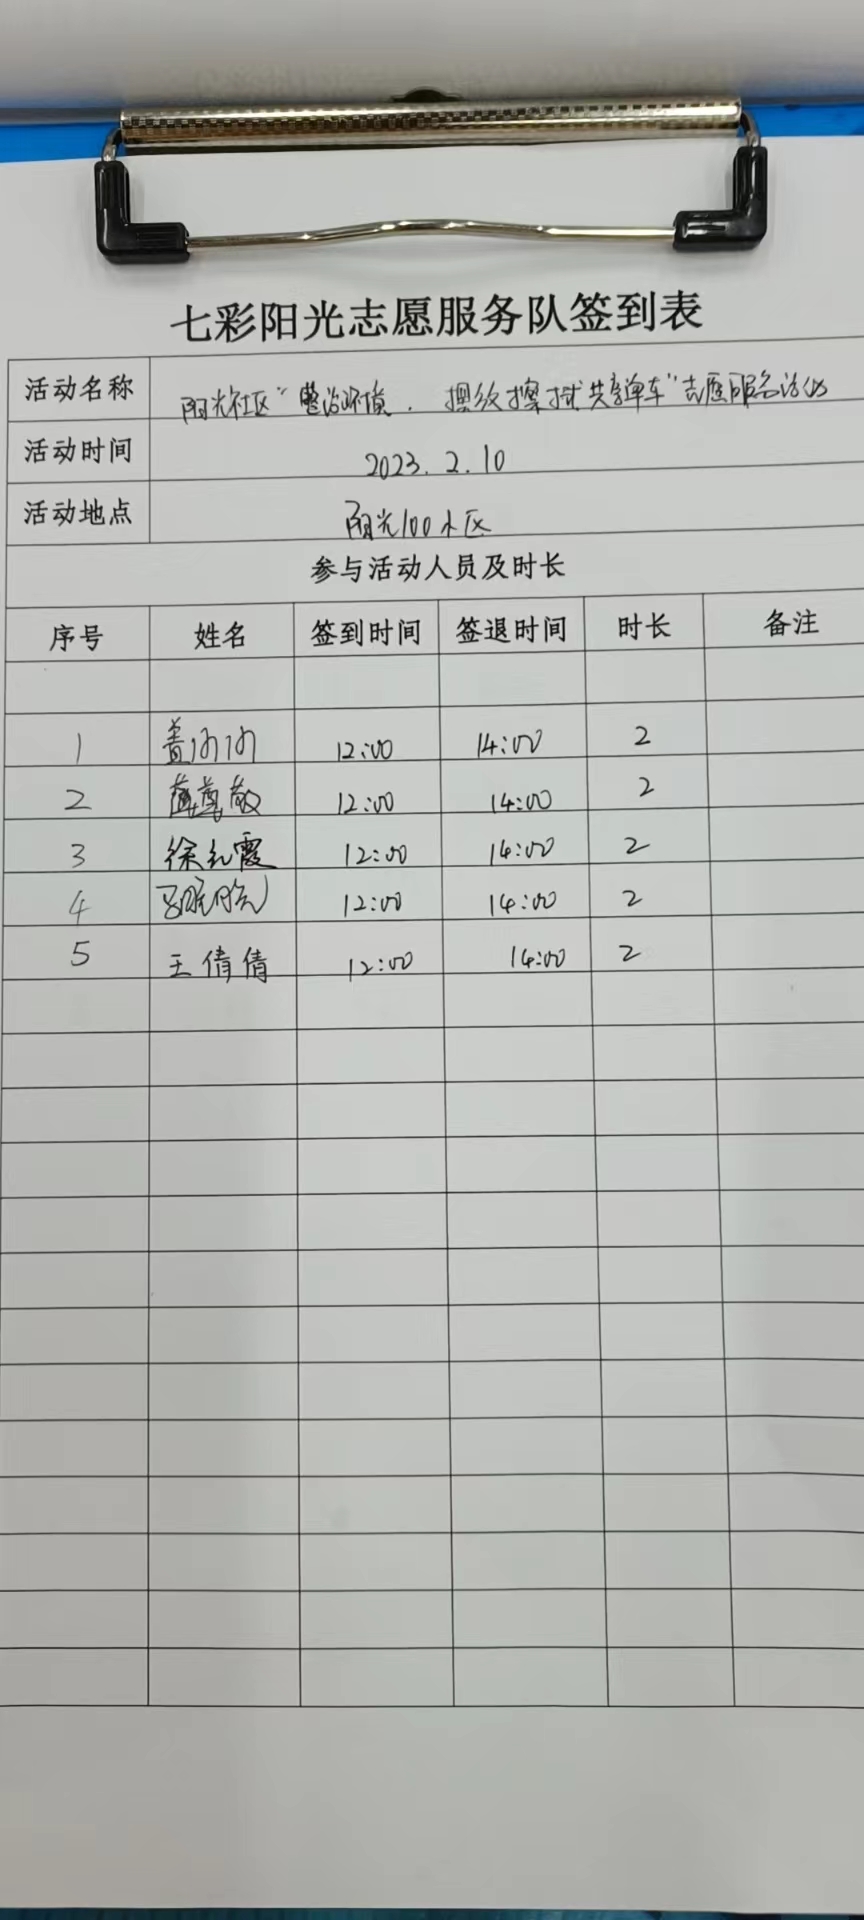 七彩阳光志愿服务队签到表
活动名称 阳光社区“整治环境，摆放擦拭共享单车”志愿服务活动
活动时间 2023.2.10
活动地点 阳光100小区
参与活动人员及时长
序号 姓名 签到时间 签退时间 时长 备注
1 12:00 14:00 2
2 12:00 14:00 2
3 徐红霞 12:00 14:00 2
4 12:00 14:00 2
5 王倩倩 12:00 14:00 2